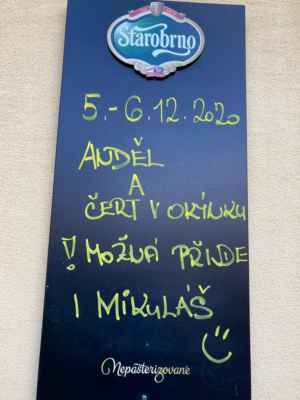 Starobrno
5.-6.12.2020
ANDĚL
A
ČERT V OKÝNKU
! MOŽNÁ PŘIJDE
I MIKULÁŠ
Nepasterizované